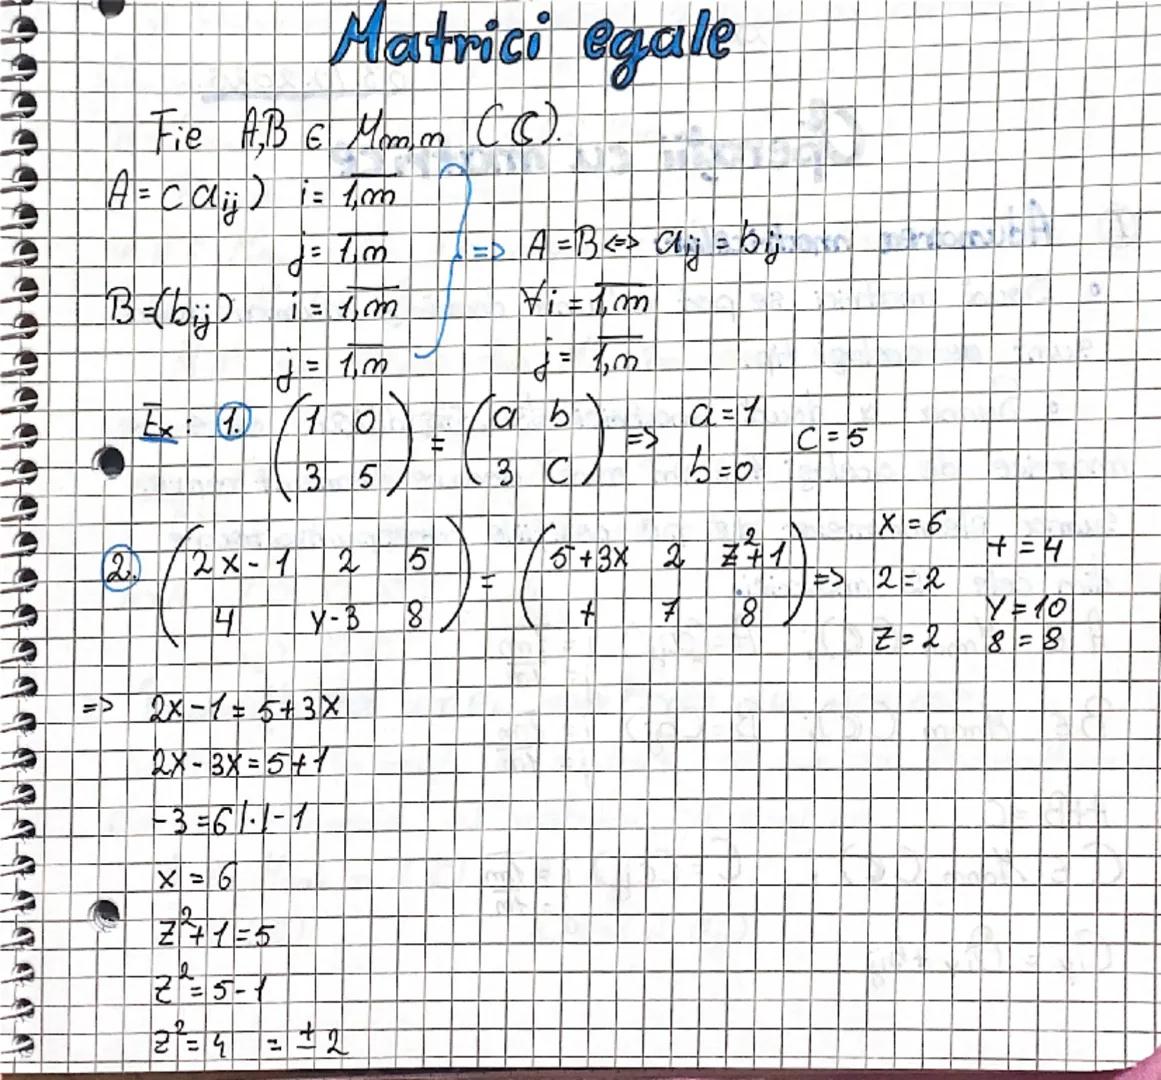 Matrici egale
Fie A,B ∈ Mm,n (ℂ).
A = (aij) i = 1,m
j = 1,n
=> A = B <=> aij = bij
B = (bij) i = 1,m ∀i = 1,m
j = 1,n j = 1,n
Ex: 1. (1 0 3 5) = (a b 3 c) => a = 1 b = 0 c = 5
2. (2x - 1 2 5 4 y - 3 8) = (5 + 3x 2 z² + 1 t 7 8) => x = 6 t = 4
2 = 2 y = 10
z = 2 8 = 8
=> 2x - 1 = 5 + 3x
2x - 3x = 5 + 1
-3 = 6 |·| - 1
x = 6
z² + 1 = 5
z² = 5 - 1
z² = 4 = ± 2